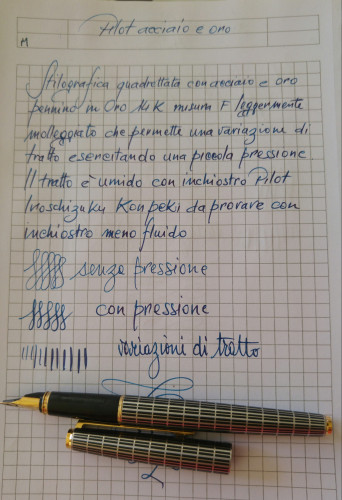 Pilot acciaio e oro
M
Stilografica quadrettata con acciaio e oro
pennino in Oro 14K misura F leggermente
molleggiato che permette una variazione di
tratto esercitando una piccola pressione.
Il tratto è umido con inchiostro Pilot
Iroshizuku Konpeki da provare con
inchiostro meno fluido
senza pressione
con pressione
variazioni di tratto